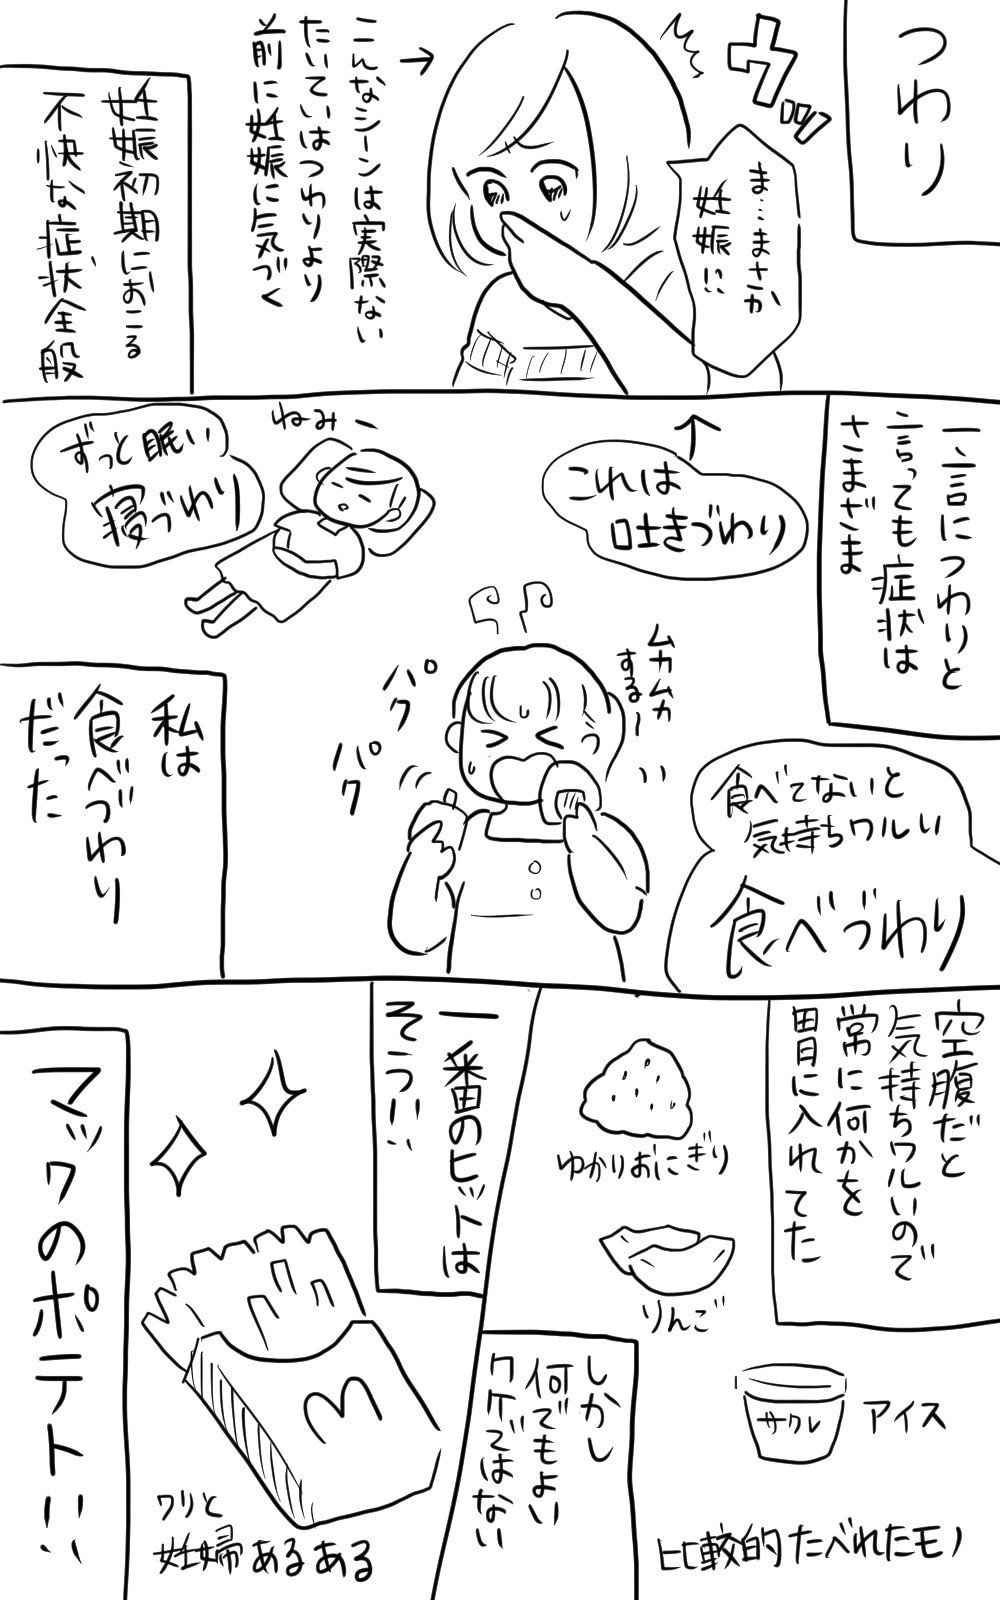 つわり
ウッ
ま…まさか
妊娠!?
→
こんなシーンは実際ない
たいていはつわりより
前に妊娠に気づく
妊娠初期におこる
不快な症状全般
一言につわりと
言っても症状は
さまざま
↑
これは
吐きづわり
ねみー
ずっと眠い
寝づわり
ムカムカ
するー
パク
パク
食べてないと
気持ちワルい
食べづわり
私は
食べづわり
だった
空腹だと
気持ちワルいので
常に何かを
胃に入れてた
ゆかりおにぎり
りんご
サクレ
アイス
比較的たべれたモノ
しかし
何でもよい
ワケではない
一番のヒットは
そう!!
M
マックのポテト!!
ワリと
妊婦あるある